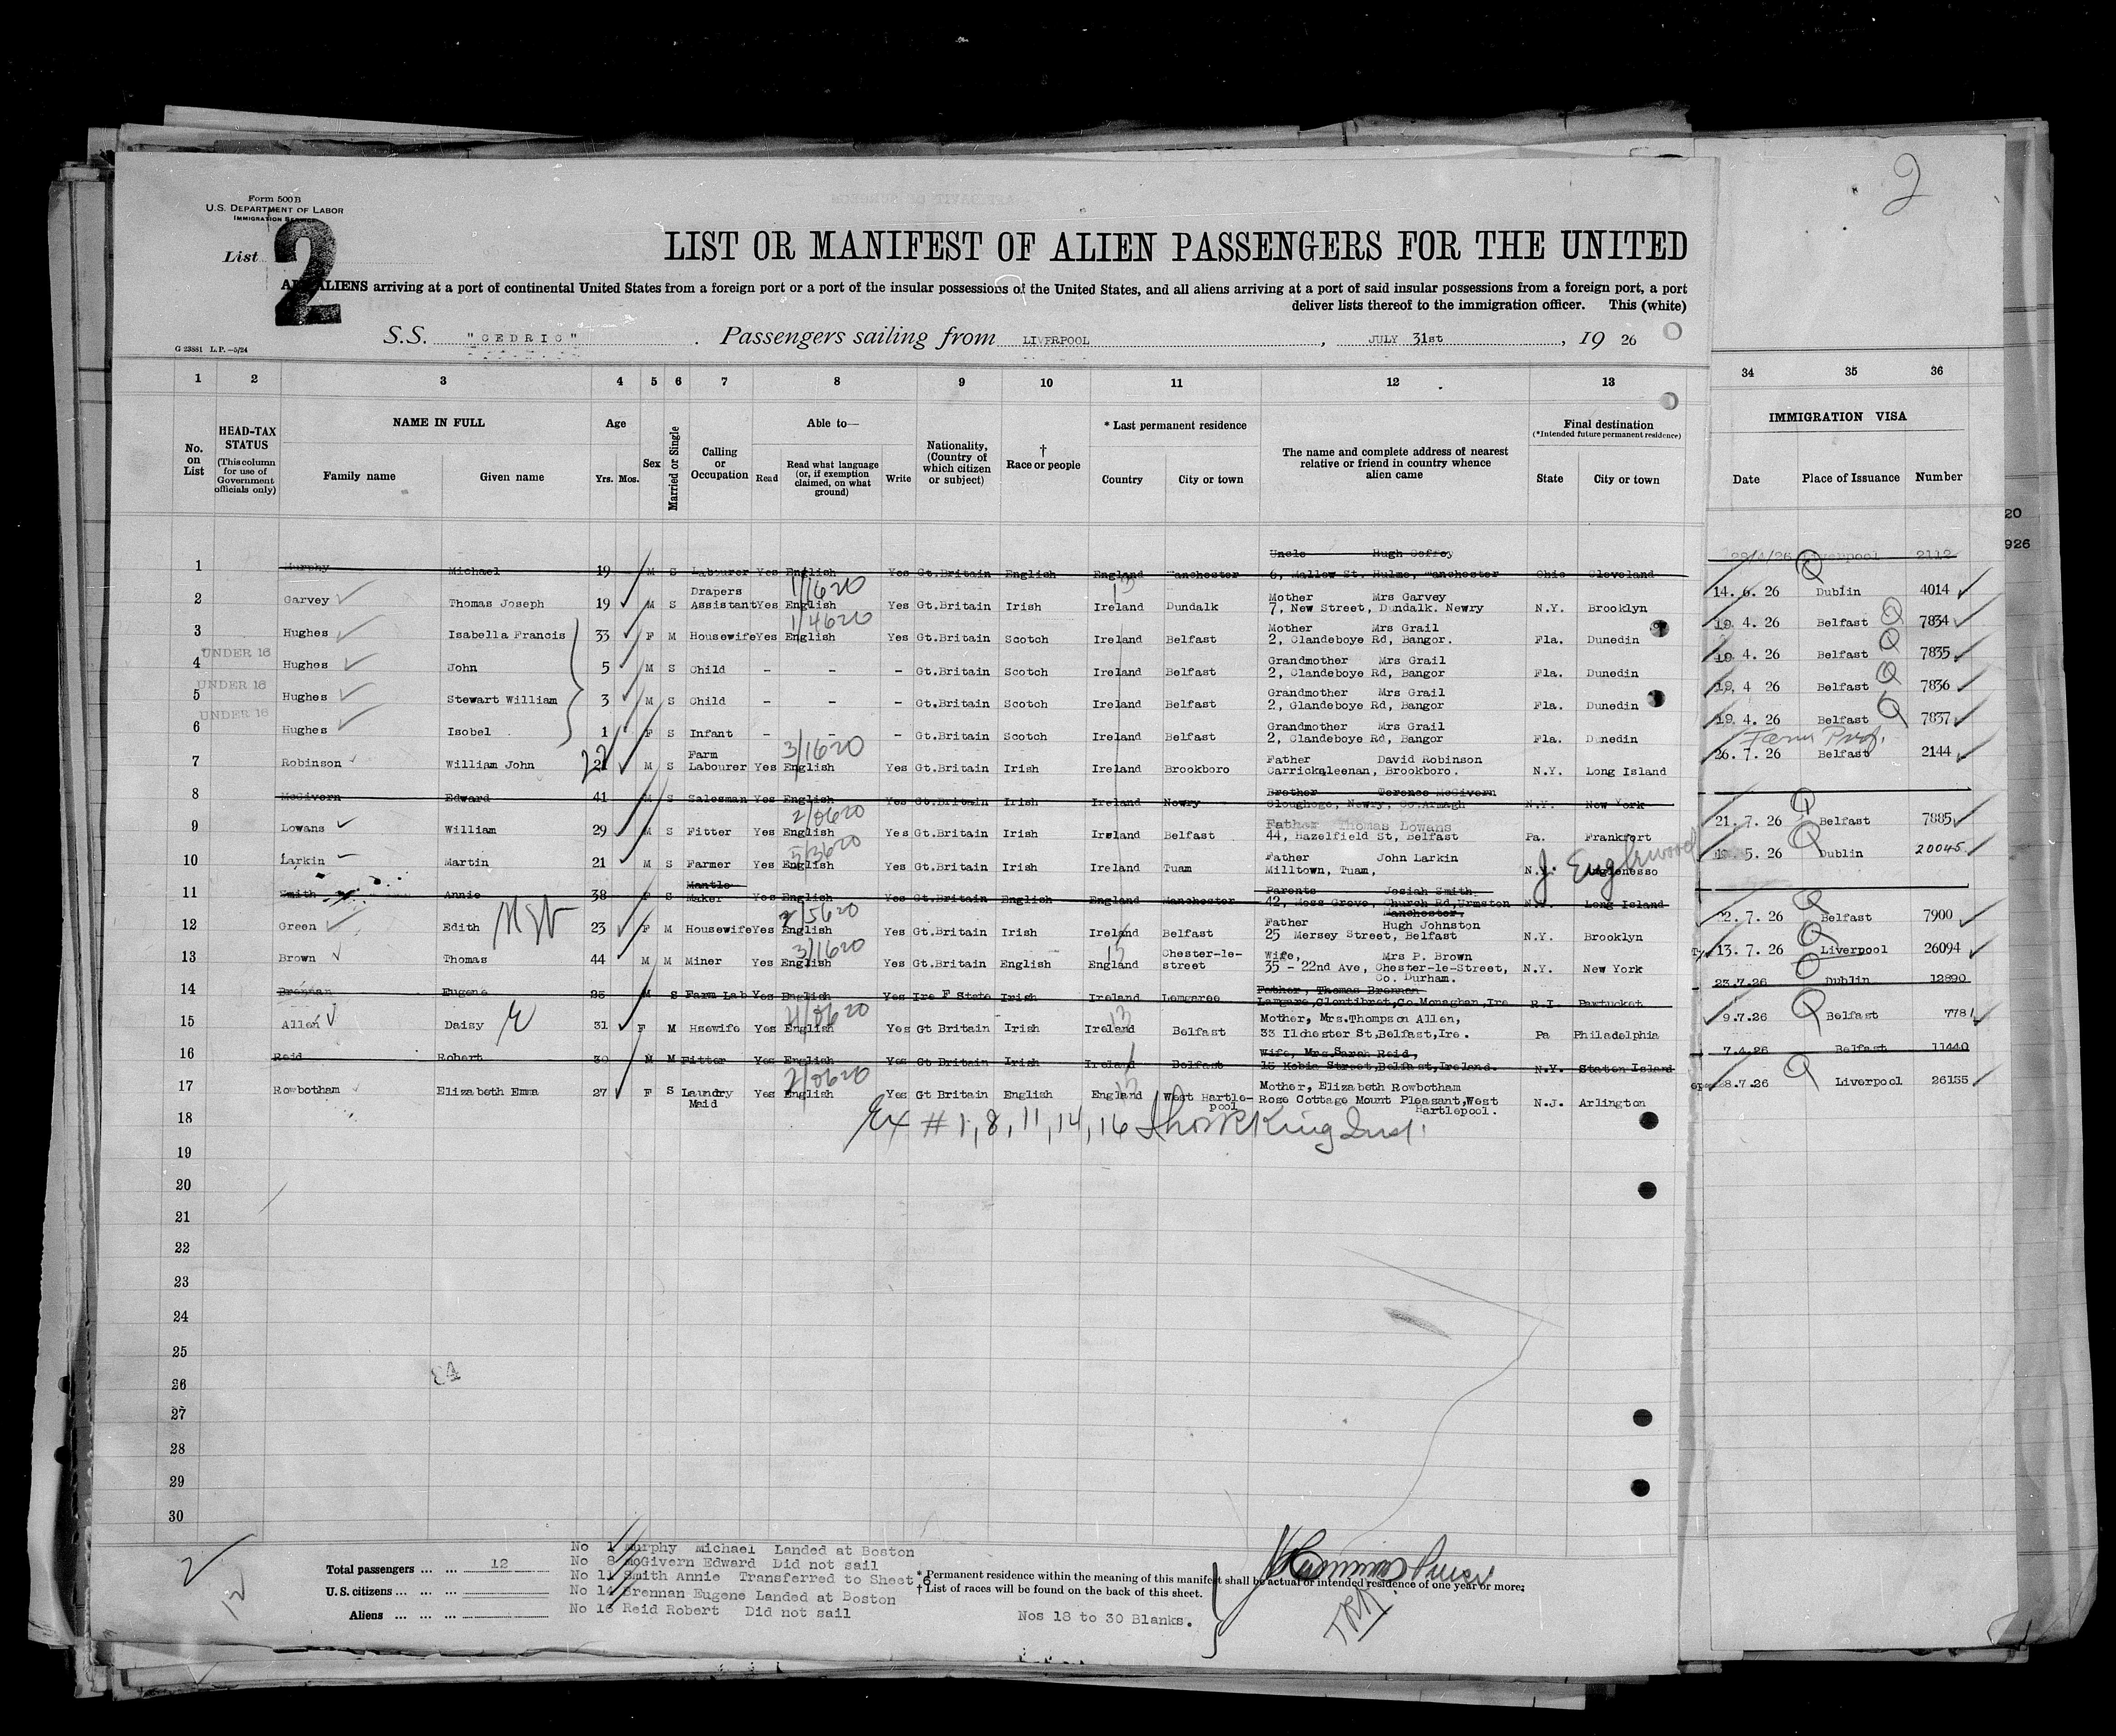 2
Form 500B
U.S. DEPARTMENT OF LABOR
IMMIGRATION SERVICE
List 2
LIST OR MANIFEST OF ALIEN PASSENGERS FOR THE UNITED
ALL ALIENS arriving at a port of continental United States from a foreign port or a port of the insular possessions of the United States, and all aliens arriving at a port of said insular possessions from a foreign port, a port
deliver lists thereof to the immigration officer. This (white)
S.S. "CEDRIC" . Passengers sailing from LIVERPOOL , JULY 31st , 19 26
G 23881 L.P.—5/24
1 2 3 4 5 6 7 8 9 10 11 12 13 34 35 36
No. on List
HEAD-TAX STATUS (This column for use of Government officials only)
NAME IN FULL
Family name Given name
Age
Yrs. Mos.
Sex
Married or Single
Calling or Occupation
Able to—
Read
Read what language (or, if exemption claimed, on what ground)
Write
Nationality, (Country of which citizen or subject)
† Race or people
* Last permanent residence
Country City or town
The name and complete address of nearest relative or friend in country whence alien came
Final destination
(*Intended future permanent residence)
State City or town
IMMIGRATION VISA
Date Place of Issuance Number
20
926
Uncle Hugh Coffey
1 Murphy Michael 19 M S Labourer Yes English Yes Gt.Britain English England Manchester 6, Mallow St. Hulme, Manchester Ohio Cleveland 28/4/26 Liverpool 2112
Drapers 1/1620 Mother Mrs Garvey
2 Garvey Thomas Joseph 19 M S Assistant Yes English Yes Gt.Britain Irish Ireland Dundalk 7, New Street, Dundalk. Newry N.Y. Brooklyn 14. 6. 26 Dublin 4014
1/4620 Mother Mrs Grail
3 Hughes Isabella Francis 33 F M Housewife Yes English Yes Gt.Britain Scotch Ireland Belfast 2, Clandeboye Rd, Bangor. Fla. Dunedin 19. 4. 26 Belfast 7834
UNDER 16 Grandmother Mrs Grail
4 Hughes John 5 M S Child - - - Gt.Britain Scotch Ireland Belfast 2, Clandeboye Rd, Bangor Fla. Dunedin 19 4. 26 Belfast 7835
UNDER 16 Grandmother Mrs Grail
5 Hughes Stewart William 3 M S Child - - - Gt.Britain Scotch Ireland Belfast 2, Glandeboye Rd, Bangor Fla. Dunedin 19. 4 26 Belfast 7836
UNDER 16 Grandmother Mrs Grail
6 Hughes Isobel 1 F S Infant - - - Gt.Britain Scotch Ireland Belfast 2, Clandeboye Rd, Bangor Fla. Dunedin 19. 4. 26 Belfast 7837
22 Farm 3/1620 Father David Robinson
7 Robinson William John 21 M S Labourer Yes English Yes Gt.Britain Irish Ireland Brookboro Carrickaleenan, Brookboro. N.Y. Long Island 26. 7. 26 Belfast 2144
Brother Terence McGivern
8 McGivern Edward 41 M S Salesman Yes English Yes Gt.Britain Irish Ireland Newry Cloughoge, Newry, Co.Armagh N.Y. New York
2/0620 Father Thomas Lowans
9 Lowans William 29 M S Fitter Yes English Yes Gt.Britain Irish Ireland Belfast 44, Hazelfield St, Belfast Pa. Frankfort 21. 7. 26 Belfast 7885
5/3620 Father John Larkin
10 Larkin Martin 21 M S Farmer Yes English Yes Gt.Britain Irish Ireland Tuam Milltown, Tuam, N.Y. J. Englewood 5. 26 Dublin 20045
Mantle Parents Josiah Smith
11 Smith Annie 38 F S Maker Yes English Yes Gt.Britain English England Manchester 42, Moss Grove, Church Rd, Urmston N.Y. Long Island
Manchester.
2/5620 Father Hugh Johnston
12 Green Edith 23 F M Housewife Yes English Yes Gt.Britain Irish Ireland Belfast 25 Mersey Street, Belfast N.Y. Brooklyn 22. 7. 26 Belfast 7900
3/1620 Chester-le- Wife, Mrs P. Brown
13 Brown Thomas 44 M M Miner Yes English Yes Gt.Britain English England street 35 - 22nd Ave, Chester-le-Street, N.Y. New York 13. 7. 26 Liverpool 26094
Co. Durham.
Father, Thomas Brennan
14 Brennan Eugene 25 M S Farm Lab Yes English Yes Ire F State Irish Ireland Lemgaree Lemgare, Clontibret, Co.Monaghan, Ire R.I. Pawtucket 23.7.26 Dublin 12890
4/0620 Mother, Mrs.Thompson Allen,
15 Allen Daisy 31 F M Hsewife Yes English Yes Gt Britain Irish Ireland Belfast 33 Ilchester St,Belfast,Ire. Pa Philadelphia 9.7.26 Belfast 7781
Wife, Mrs.Sarah Reid,
16 Reid Robert 30 M M Fitter Yes English Yes Gt Britain Irish Ireland Belfast 15 Kobia Street,Belfast,Ireland. N.Y. Staten Island 7.4.26 Belfast 11440
2/0620 Mother, Elizabeth Rowbotham
17 Rowbotham Elizabeth Emma 27 F S Laundry Maid Yes English Yes Gt Britain English England West Hartle-pool Rose Cottage Mount Pleasant,West Hartlepool. N.J. Arlington 28.7.26 Liverpool 26135
18 Ex # 1, 8, 11, 14, 16
19
20
21
22
23
24
25
26
27
28
29
30
Total passengers ... ... 12
U.S. citizens ... ... ...
Aliens ... ... ...
No 1 Murphy Michael Landed at Boston
No 8 McGivern Edward Did not sail
No 11 Smith Annie Transferred to Sheet 6
No 14 Brennan Eugene Landed at Boston
No 16 Reid Robert Did not sail
* Permanent residence within the meaning of this manifest shall be actual or intended residence of one year or more.
† List of races will be found on the back of this sheet.
Nos 18 to 30 Blanks.
2
12